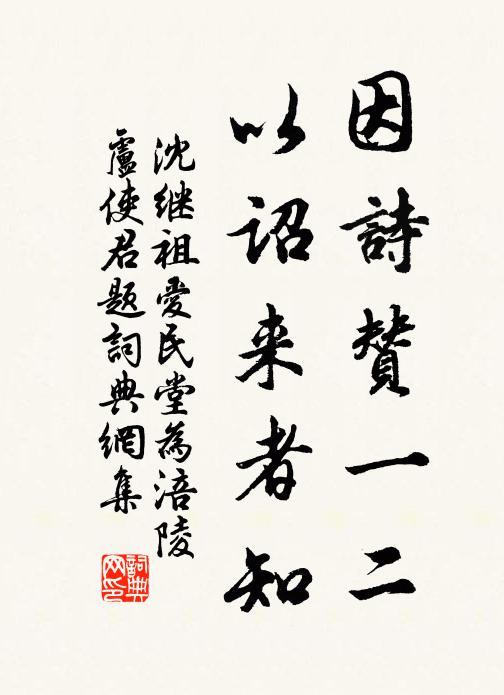 因詩贊一二
以詔来者知
沈继祖愛民堂為涪陵
盧使君题詞典網集
詞典网印